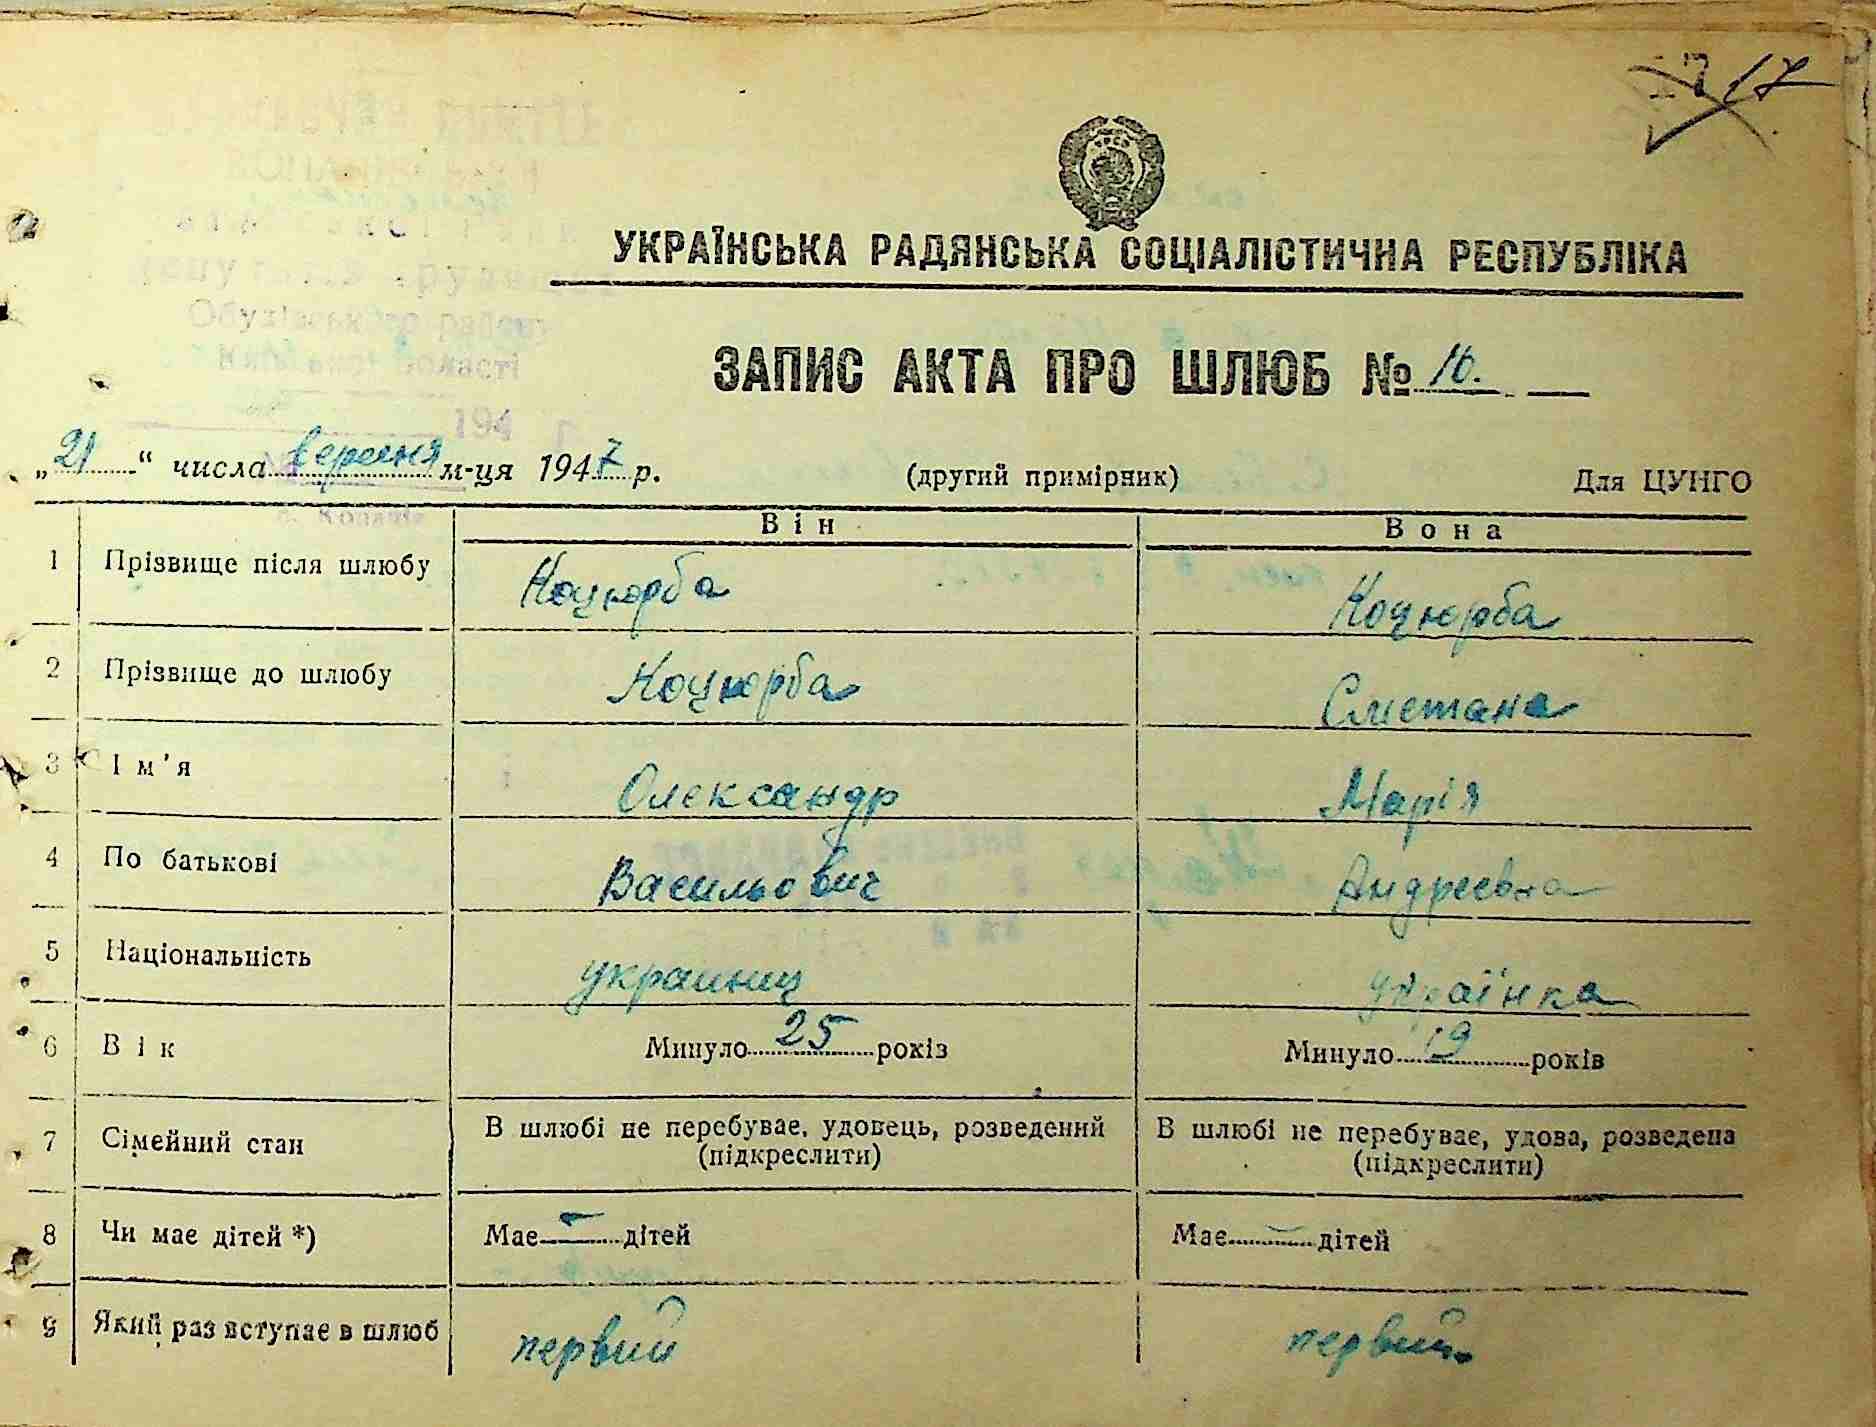 17 17
УКРАЇНСЬКА РАДЯНСЬКА СОЦІАЛІСТИЧНА РЕСПУБЛІКА
ЗАПИС АКТА ПРО ШЛЮБ № 16.
„21“ числа вересня м-ця 1947 р. (другий примірник) Для ЦУНГО
Він Вона
1 Прізвище після шлюбу Коцюрба Коцюрба
2 Прізвище до шлюбу Коцюрба Сметана
3 Ім'я Олександр Марія
4 По батькові Васильович Андреевна
5 Національність украинец українка
6 Вік Минуло 25 років Минуло 19 років
7 Сімейний стан В шлюбі не перебуває, удовець, розведений В шлюбі не перебуває, удова, розведена
(підкреслити) (підкреслити)
8 Чи має дітей *) Має – дітей Має – дітей
9 Який раз вступає в шлюб первий первий.
Обухівського району
Київської області
194